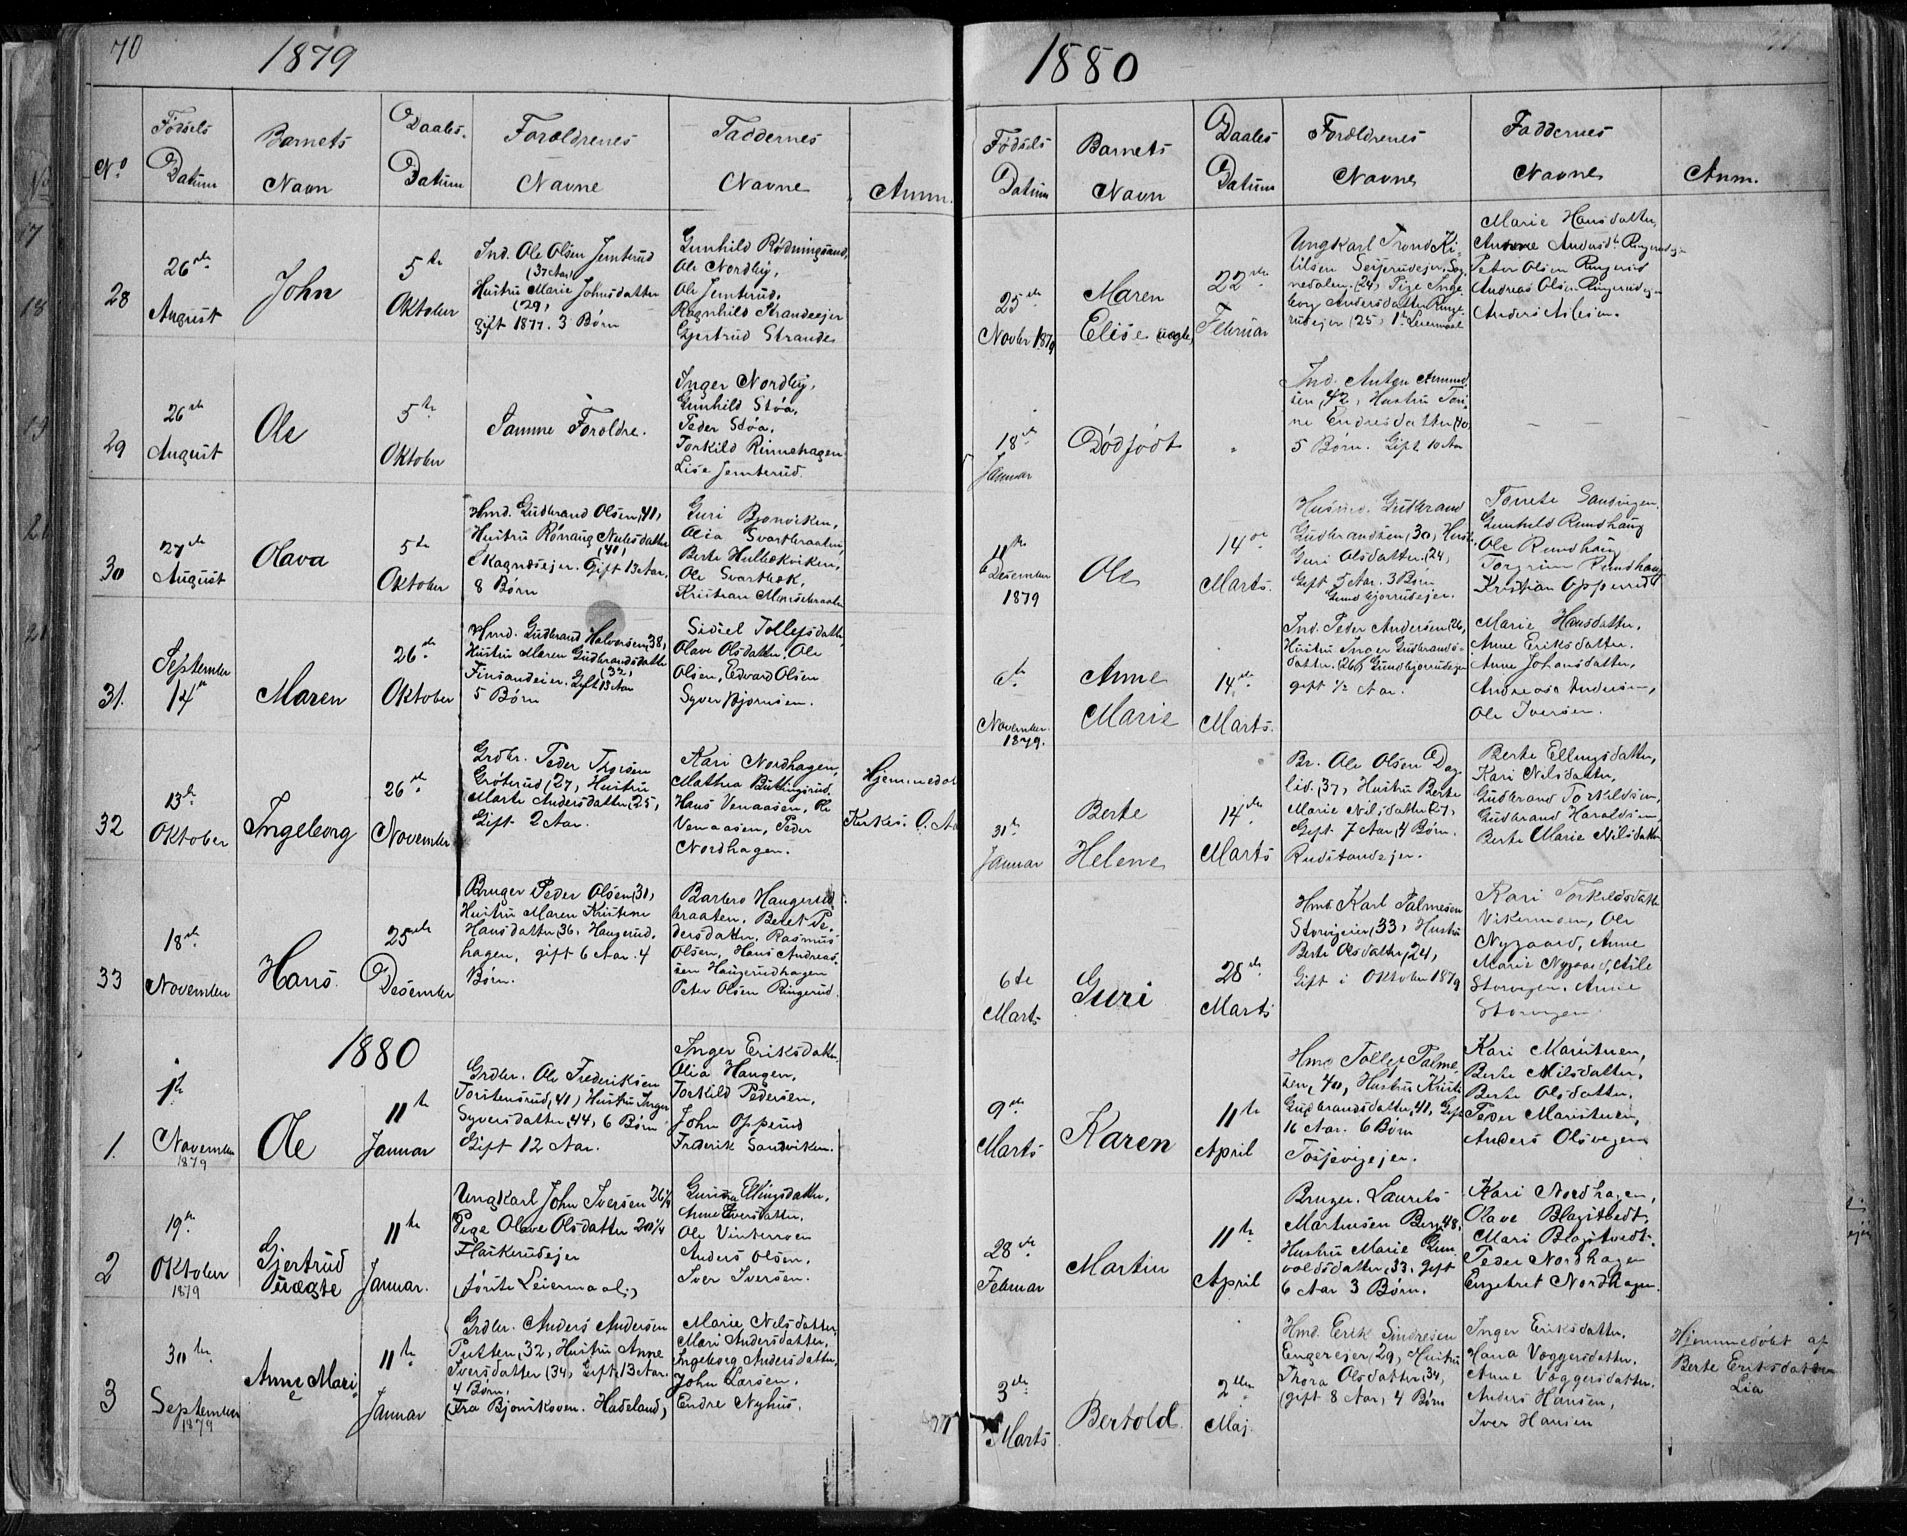 70
1879
No
Fødsels
Datum
Barnets
Navn
Daabs-
Datum
Forældrenes
Navne
Faddernes
Navne
Anm.
28
26de
August
John
5te
Oktober
Ind. Ole Olsen Jemterud
(37 Aar)
Hustru Marie Johnsdatter
(29)
gift 1877. 3 Børn
Gunhild Rødningsand,
Ole Nordby,
Ole Jemterud,
Ragnhild Strandeejer
Gjertrud Strande
29
26de
August
Ole
5te
Oktober
Samme Foreldre.
Inger Nordby,
Gunhild Støa,
Peder Støa,
Torkild Rinnehagen
Lise Jemterud.
30
27de
August
Olava
5te
Oktober
Hmd. Gudbrand Olsen, 41,
Hustru Rønnaug Nubsdatter
(41)
Skagnæsejer. Gift 13 Aar.
8 Børn
Guri Bjonviken,
Olia Svartbraaten,
Berte Hulbækviken,
Ole Svartbæk,
Kristian
31.
September
14de
Maren
26de
Oktober
Hmd. Gudbrand Halvorsen, 38,
Hustru Maren Gudbrandsdatter
(32)
Finsandeier. Gift 13 Aar
5 Børn
Sidsel Tollefsdatter,
Olave Olsdatter, Ole
Olsen, Edvard Olsen
Syver Bjørnsen.
32
13de
Oktober
Ingeborg
26de
November
Grdbr. Peder Thorsen
Grøterud, (27, Hustru
Marte Andersdatter (25,
Gift 2 Aar.
Kari Nordhagen,
Mathea Buttingsrud,
Hans Venaasen, Ole
Venaasen, Peder
Nordhagen.
Hjemmedøb
Kirkes. O. Aa
33
18de
November
Hans.
25de
Desember
Bruger Peder Olsen (31,
Hustru Maren Kristine
Hansdatter 36, Haugerud-
hagen, gift 6 Aar. 4
Børn.
Barbro Haugerud-
braaten, Beret Pe-
dersdatter, Rasmus
Olsen, Hans Andreas-
sen Haugerudhagen
Peter Olsen Ringerud.
1880
1.
1te
November
1879
Ole
11te
Januar
Grdbr. Ole Frederiksen
Torstensrud, 41, Hustru Inger
Syversdatter, 44, 6 Børn
Gift 12 Aar.
Inger Eriksdatter,
Olia Haugen,
Torkild Pedersen,
John Opperud
Frederik Sandviken.
2
19de
Oktober
1879
Gjertrud
uægte
11te
Januar.
Ungkarl John Iversen 26 1/4
Pige Olave Olsdatter 20 1/4
Flaskerudejer
(første Leiermaal)
Gurina Ellingsdatter,
Anne Iversdatter,
Ole Vinterroen
Anders Olsen,
Iver Iversen.
3
30te
September
1879
Anne Marie
11te
Januar
Grdbr. Anders Andersen
Putten, 32, Hustru Anne
Iversdatter (34, Gift 13 Aar.
4 Børn.
(Fra Bjoniskoven. Hadeland)
Marie Nilsdatter,
Mari Andersdatter,
Ingeborg Andersdatter,
John Larsen,
Endre Nyhus.
1880
Fødsels
Datum
Barnets
Navn
Daabs
Datum
Forældrenes
Navne
Faddernes
Navne
Anm.
25de
Novbr 1879
Maren
Elise (uægte)
22de
Februar
Ungkarl Trond Ki-
tilsen Seierudejer, Sog-
nedalen (24, Pige Inge-
borg Andersdatter Ringe-
rudejer (25, 1te Leiermaal
Marie Hansdatter,
Anne Andersdt Ringerudejer
Peter Olsen Ringerud
Andreas Olsen Ringerudejer
Anders Aslesen.
18de
Januar
Dødfødt
Ind. Anton Amund
sen (42, Hustru Tori-
ne Endresdatter (40
5 Børn. Gift 10 Aar
11te
Desember
1879
Ole
14de
Marts.
Husmd. Gudbrand
Gudbrandsen (30, Hust.
Guri Olsdatter (24,
Gift 5 Aar. 3 Børn
Gundbjorrudejer.
Gunhild Rundhaug
Ole Rundhaug
Torgrim Rundhaug
Kristian Opperud
6te
November
1879.
Anne
Marie
14de
Marts.
Ind. Peder Andersen (26,
Hustru Inger Gudbrands-
datter (26, Gundbjorrudejer
gift 1/2 Aar.
Marie Hansdatter,
Anne Eriksdatter,
Anne Johansdatter,
Andreas Andersen,
Ole Iversen.
31te
Januar
Berte
Helene
14de
Marts
Br. Ole Olsen Dag-
lid. (37, Hustru Berte
Marie Nilsdatter (27,
Gift 7 Aar, 4 Børn.
Rudstandejer.
Berte Ellingsdatter,
Kari Nilsdatter,
Gudbrand Torkildsen,
Gudbrand Haraldsen,
Berte Marie Nilsdatter
6te
Marts
Guri
28de
Marts
Hmd. Karl Palmesen
Storvejeier (33, Hustru
Berte Olsdatter, 24,
Gift i Oktober 1879
Kari Torkildsdatter
Vikermoen, Ole
Nygaard, Anne
Marie Nygaard, Asle
Storvegen, Anne
Storvegen
9de
Marts
Karen
11te
April
Hmd Tollef Palme-
sen, 40, Hustru Kristi
Gudbrandsdatter, 41, Gift
16 Aar. 6 Børn
Kari Maristuen,
Berte Nilsdatter,
Berte Olsdatter,
Peder Maristuen,
Anders Olsvegen
28de
Februar
Martin
11te
April
Bruger. Laurits
Martinsen Berg 48,
Hustru Marie Gun-
voldsdatter, 33, gift
6 Aar 3 Børn.
Kari Nordhagen,
Olave Blagstvedt,
Mari Blagstvedt,
Peder Nordhagen
Engebret Nordhagen.
3de
Marts
Bertold.
2den
Maj.
Hmd. Erik Sindresen
Engerejer (29, Hustru
Thora Olsdatter (34,
(gift 8 Aar, 4 Børn
Inger Eriksdatter,
Hana Vøggersdatter,
Anne Vøggersdatter,
Anders Hansen,
Iver Hansen
Hjemmedøbt af
Berte Eriksdatter
Lia